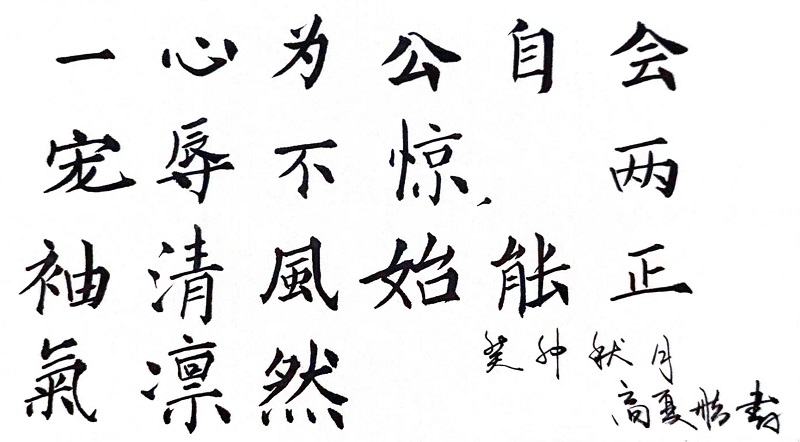 一心为公自会
宠辱不惊，两
袖清風始能正
氣凛然
癸卯秋月
高夏 書